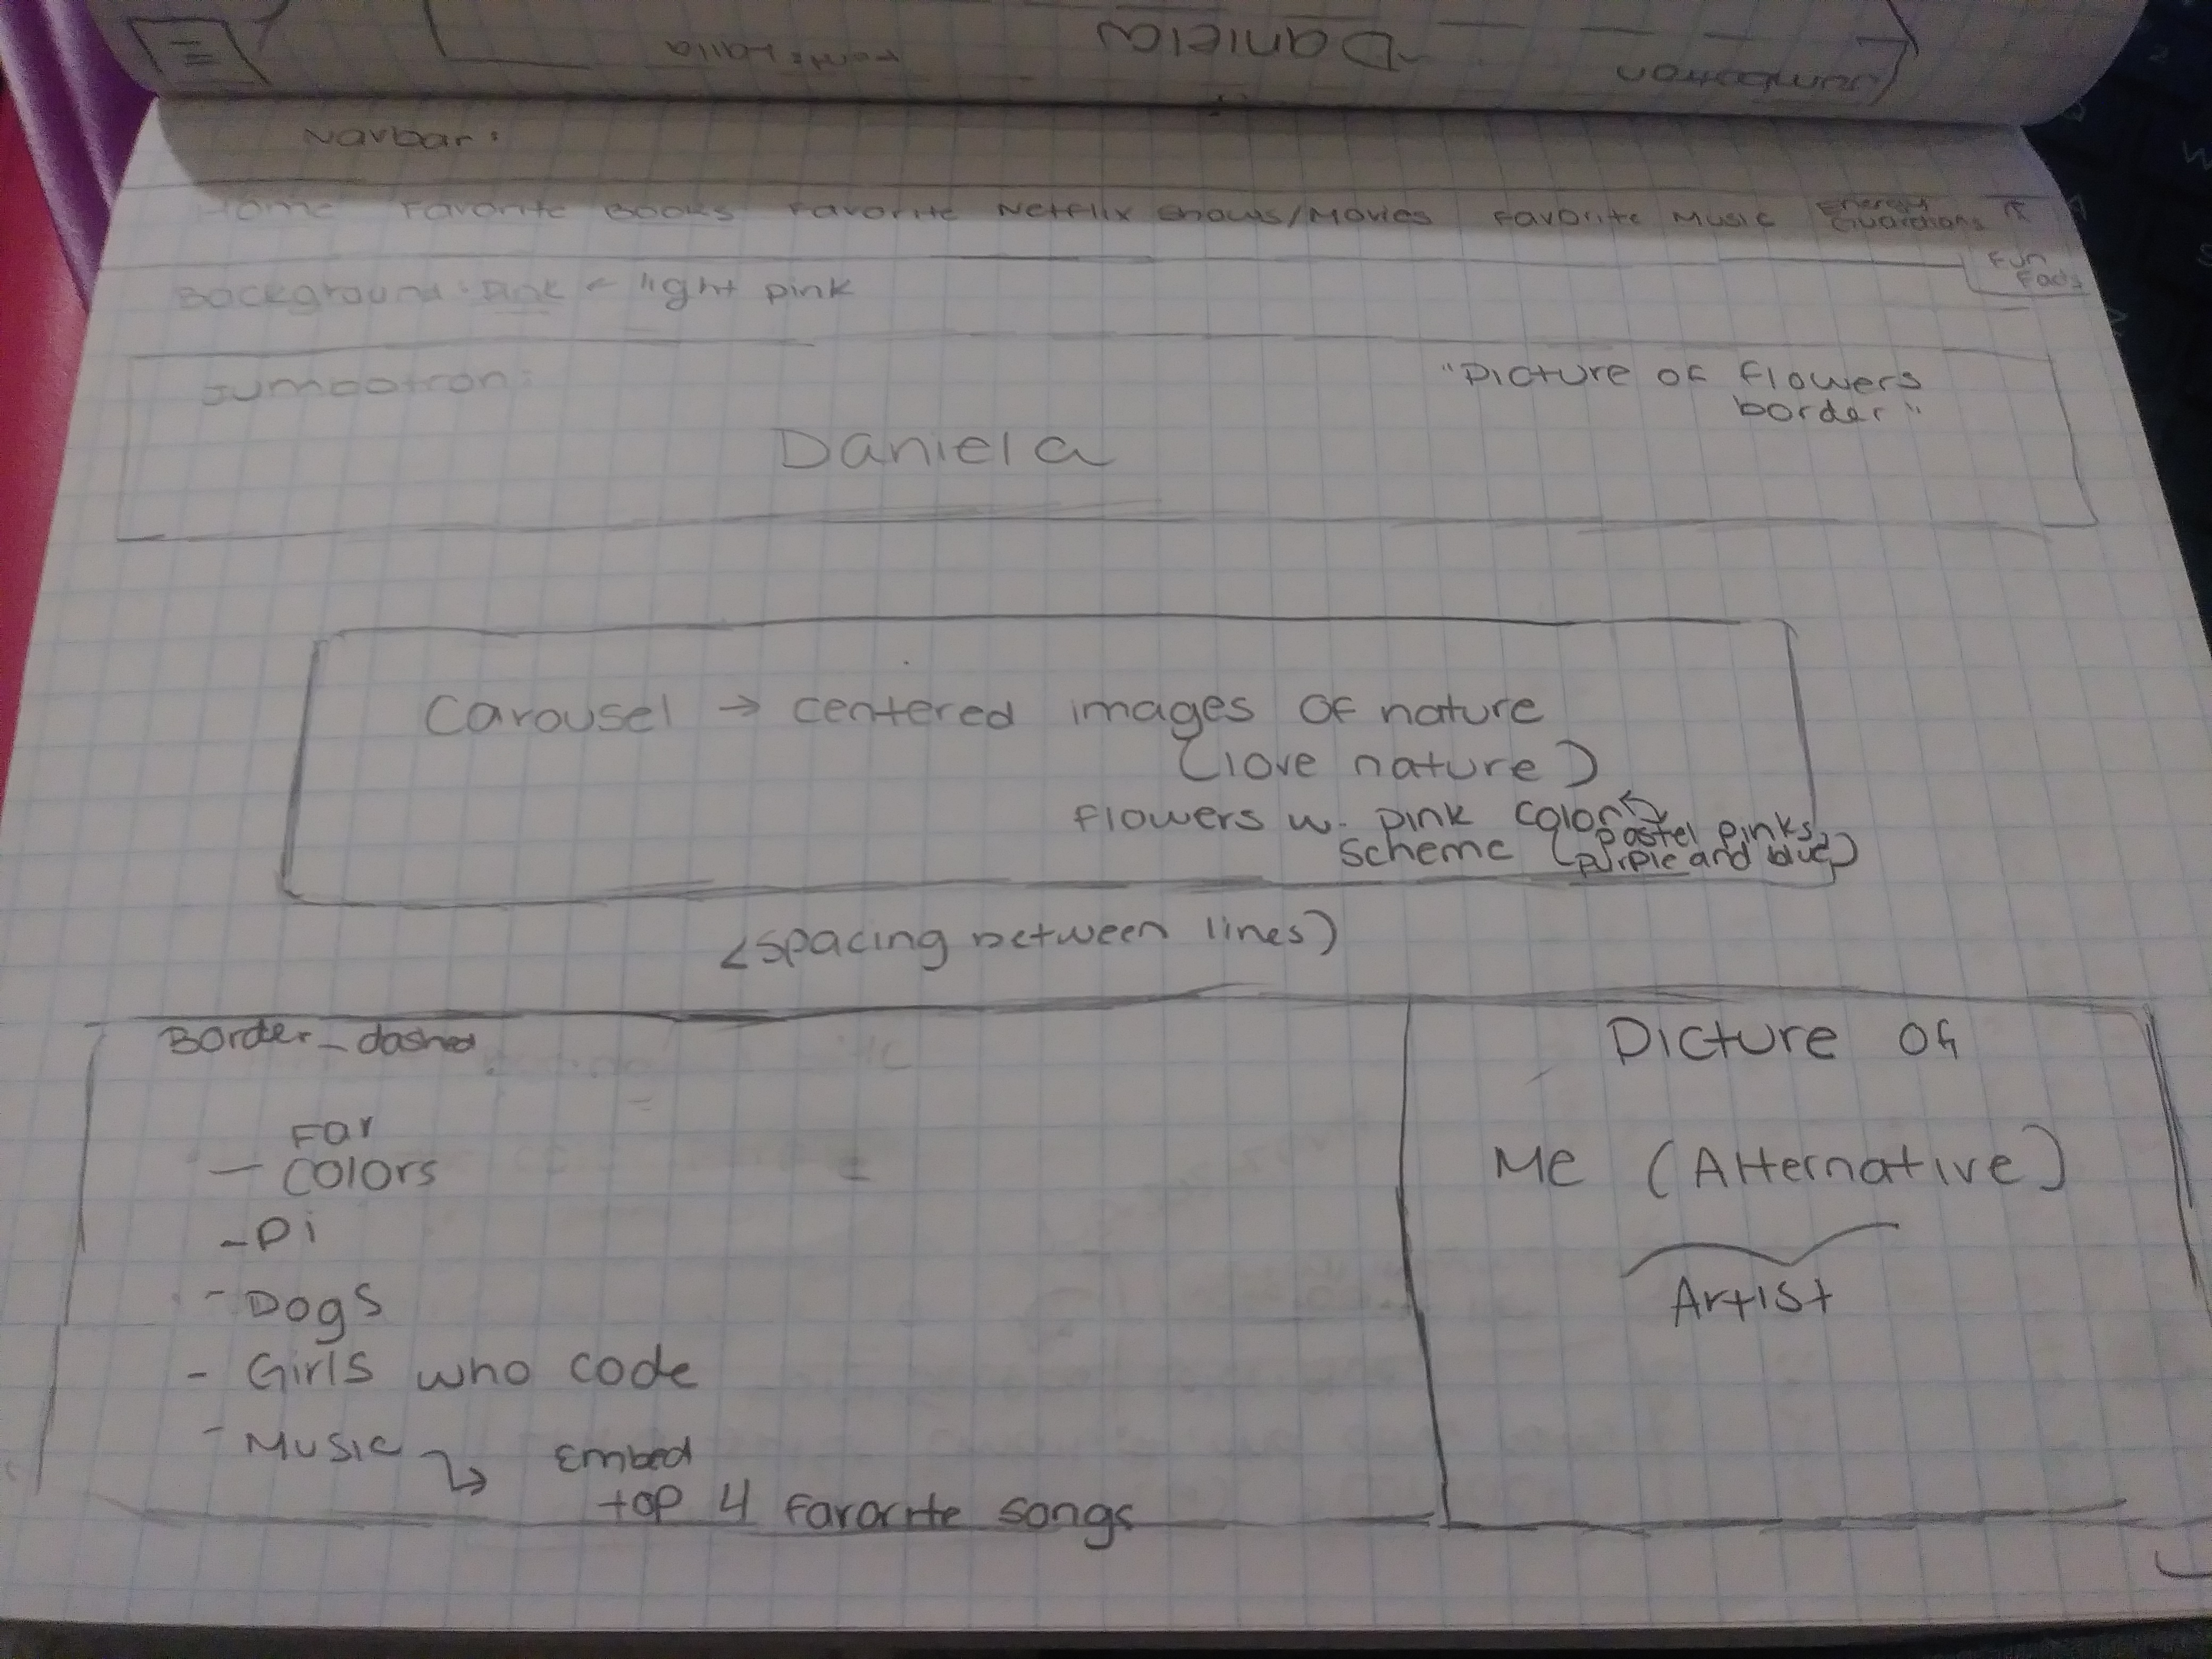 Daniela
Jumbotron
Navbar:
Home Favorite Books Favorite Netflix Shows/Movies Favorite Music Energy Guardians
Fun Facts
Background: pink light pink
Jumbotron:
"Picture of flowers
border"
Daniela
Carousel → centered images of nature
(love nature)
Flowers w. pink color
scheme (pastel pinks,
purple and blue)
<spacing between lines)
Border-dashed
Fav
- Colors
- Pi
- Dogs
- Girls who code
- Music ↳ Embed
top 4 favorite songs
Picture of
Me (Alternative)
Artist